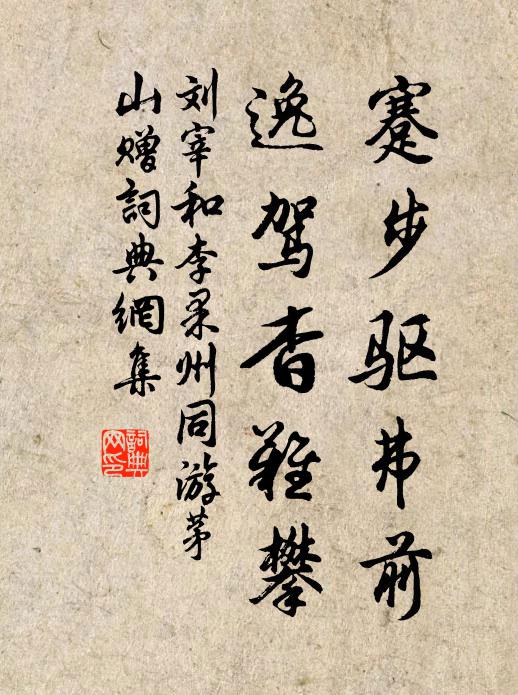 蹇步驱弗前
逸驾杳難攀
刘宰和李果州同游茅
山赠詞典網集
詞典
网印